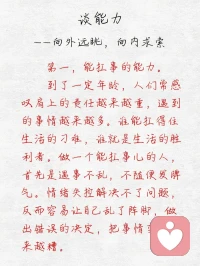 谈能力
--向外远眺，向内求索
第一，能扛事的能力。
到了一定年龄，人们常感
叹肩上的责任越来越重，遇到
的事情越来越多。谁能扛得住
生活的刁难，谁就是生活的胜
利者。做一个能扛事心的人，
首先是遇事不乱，不随便发脾
气。情绪失控解决不了问题，
反而容易让自己乱了阵脚，做
出错误的决定，把事情
来越糟。